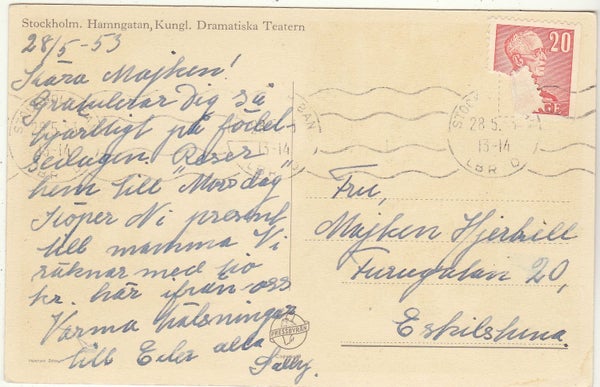 Stockholm. Hamngatan, Kungl. Dramatiska Teatern
28/5-53
Kära Majken!
Gratulerar Dig så
hjärtligt på födel-
sedagen. Reser
hem till "Morsdag"
Köper Ni present
till mamma Vi
räknar med tio
kr. här ifrån oss
Varma hälsningar
till Eder alla
Sally.
20
STOC
28 5. 53
13-14
LBR O
13-14
LBR O
BAN
Fru,
Majken Hjerkill
Furugatan 20,
Eskilstuna.
PRESSBYRÅN